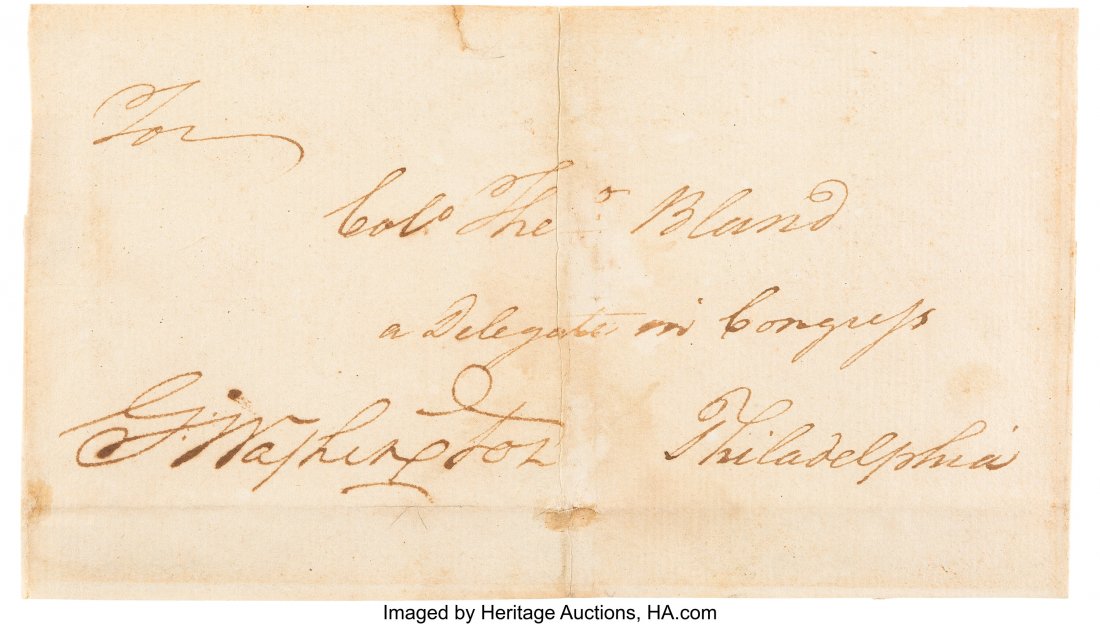 For
Colo. Theo. Bland
a Delegate in Congress
G: Washington
Philadelphia
Imaged by Heritage Auctions, HA.com